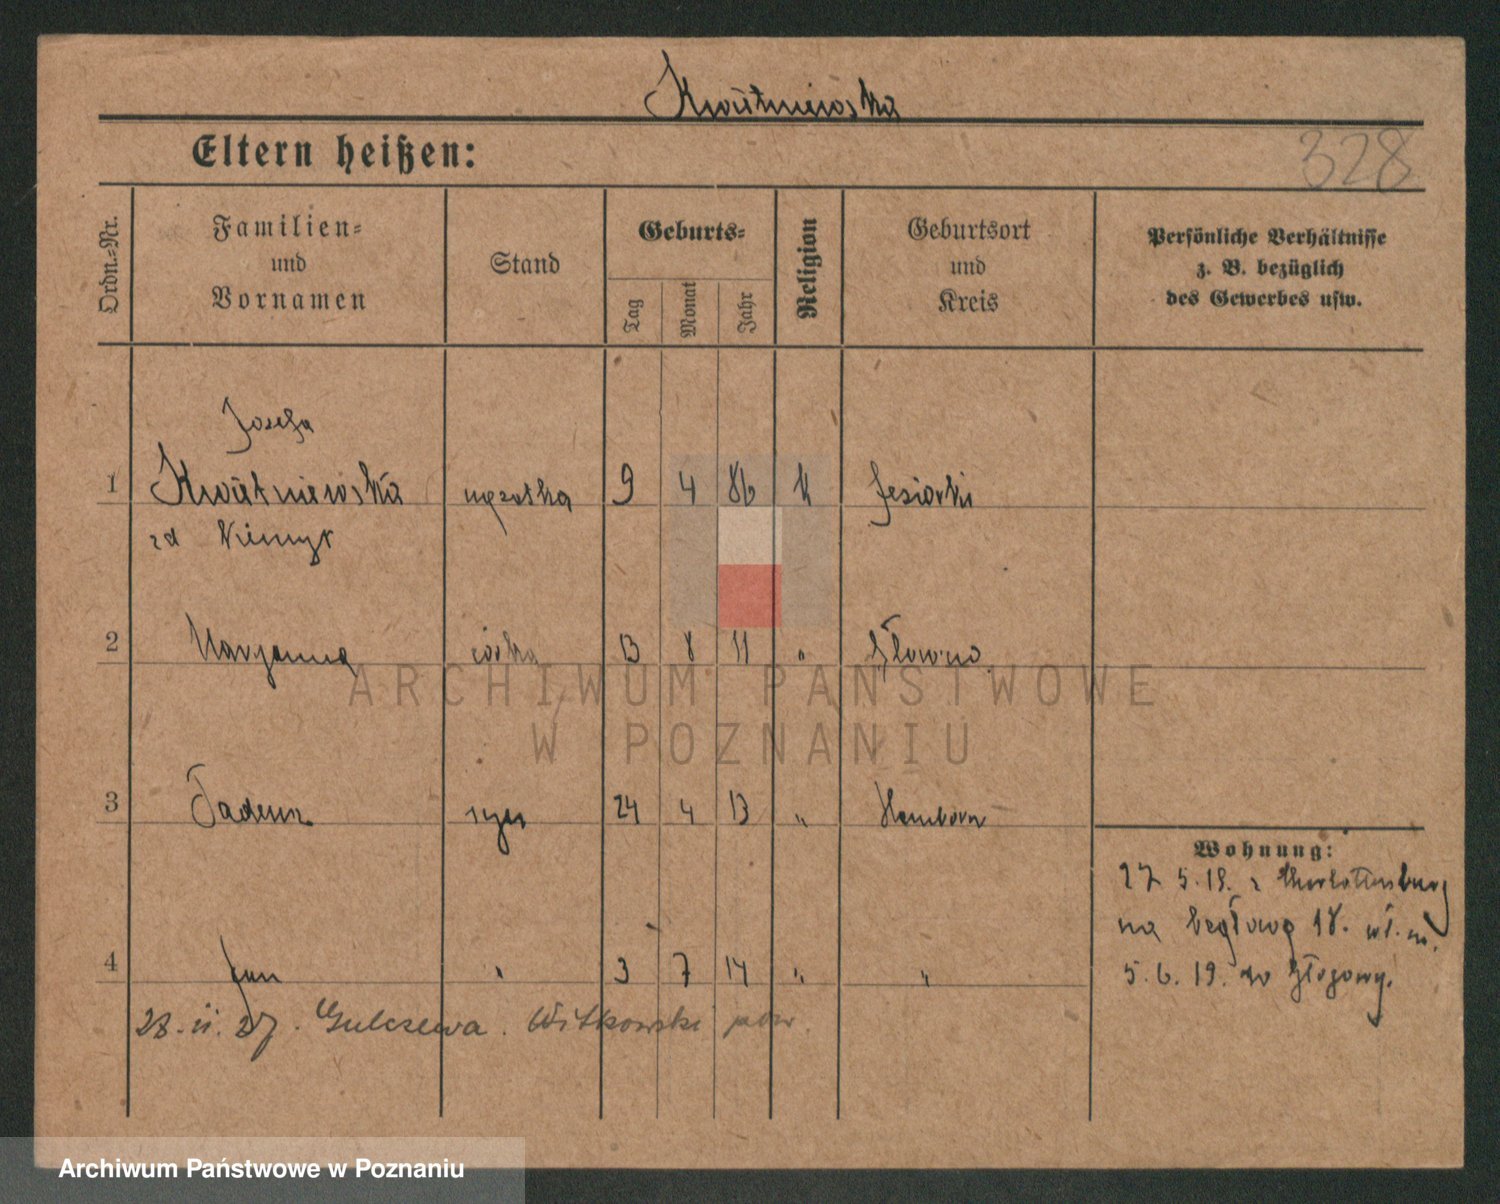 Kwiatniewska
328
Eltern heißen:
Ordn.-Nr. Familien- und Vornamen Stand Geburts- Tag Monat Jahr Religion Geburtsort und Kreis Persönliche Verhältnisse z. B. bezüglich des Gewerbes usw.
Josefa
1 Kwiatniewska mężatka 9 4 86 k Jeziorki
zd
2 Maryanna córka 13 8 11 " Główno
3 Tadeusz syn 24 4 13 " Hamborn
4 Jan " 3 7 14 " "
Wohnung:
27 5.19. z Charlottenburg
na 18.
5.6.19. do Głogowy.
28. 11. 27. Gulczewa. Witkowski pow.
ARCHIWUM PAŃSTWOWE
W POZNANIU
Archiwum Państwowe w Poznaniu